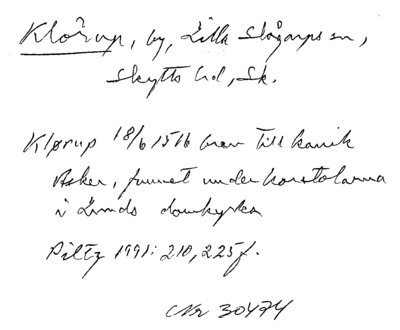 Klörup, by, Lilla Slågarps sn,
Skytts hd, Sk.
Klørup 18/6 1516 brev till kanik
Asker, funnet under korstolarna
i Lunds domkyrka
Piltz 1991: 210, 225f.
Nr 30474